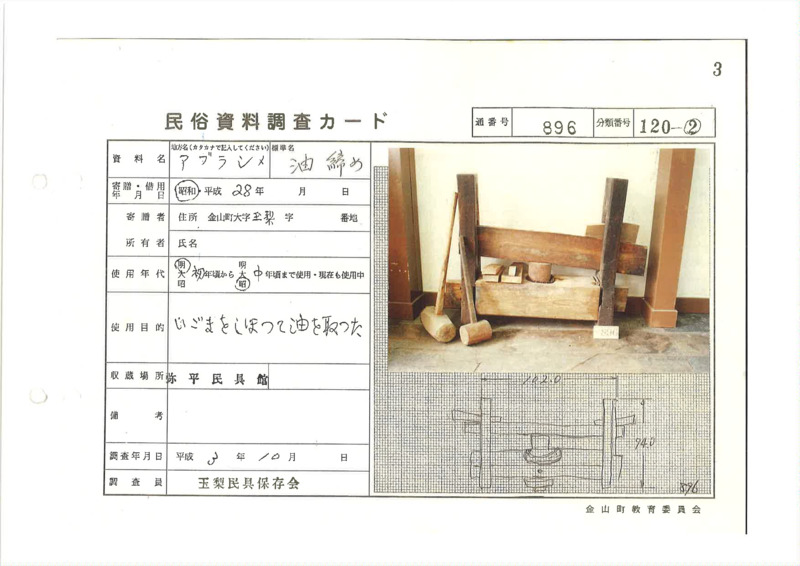 3
民俗資料調査カード
通番号 896 分類番号 120-②
資料名 地方名(カタカナで記入してください) アブラシメ 標準名 油締め
寄贈・借用年月日 昭和・平成 28年 月 日
寄贈者 住所 金山町大字玉梨字 番地
所有者 氏名
使用年代 明大昭 初年頃から 明大昭 中年頃まで使用・現在も使用中
使用目的 じごまをしぼつて油を取つた
収蔵場所 弥平民具館
備考
調査年月日 平成 3年 10月 日
調査員 玉梨民具保存会
102.0
94.0
896
金山町教育委員会